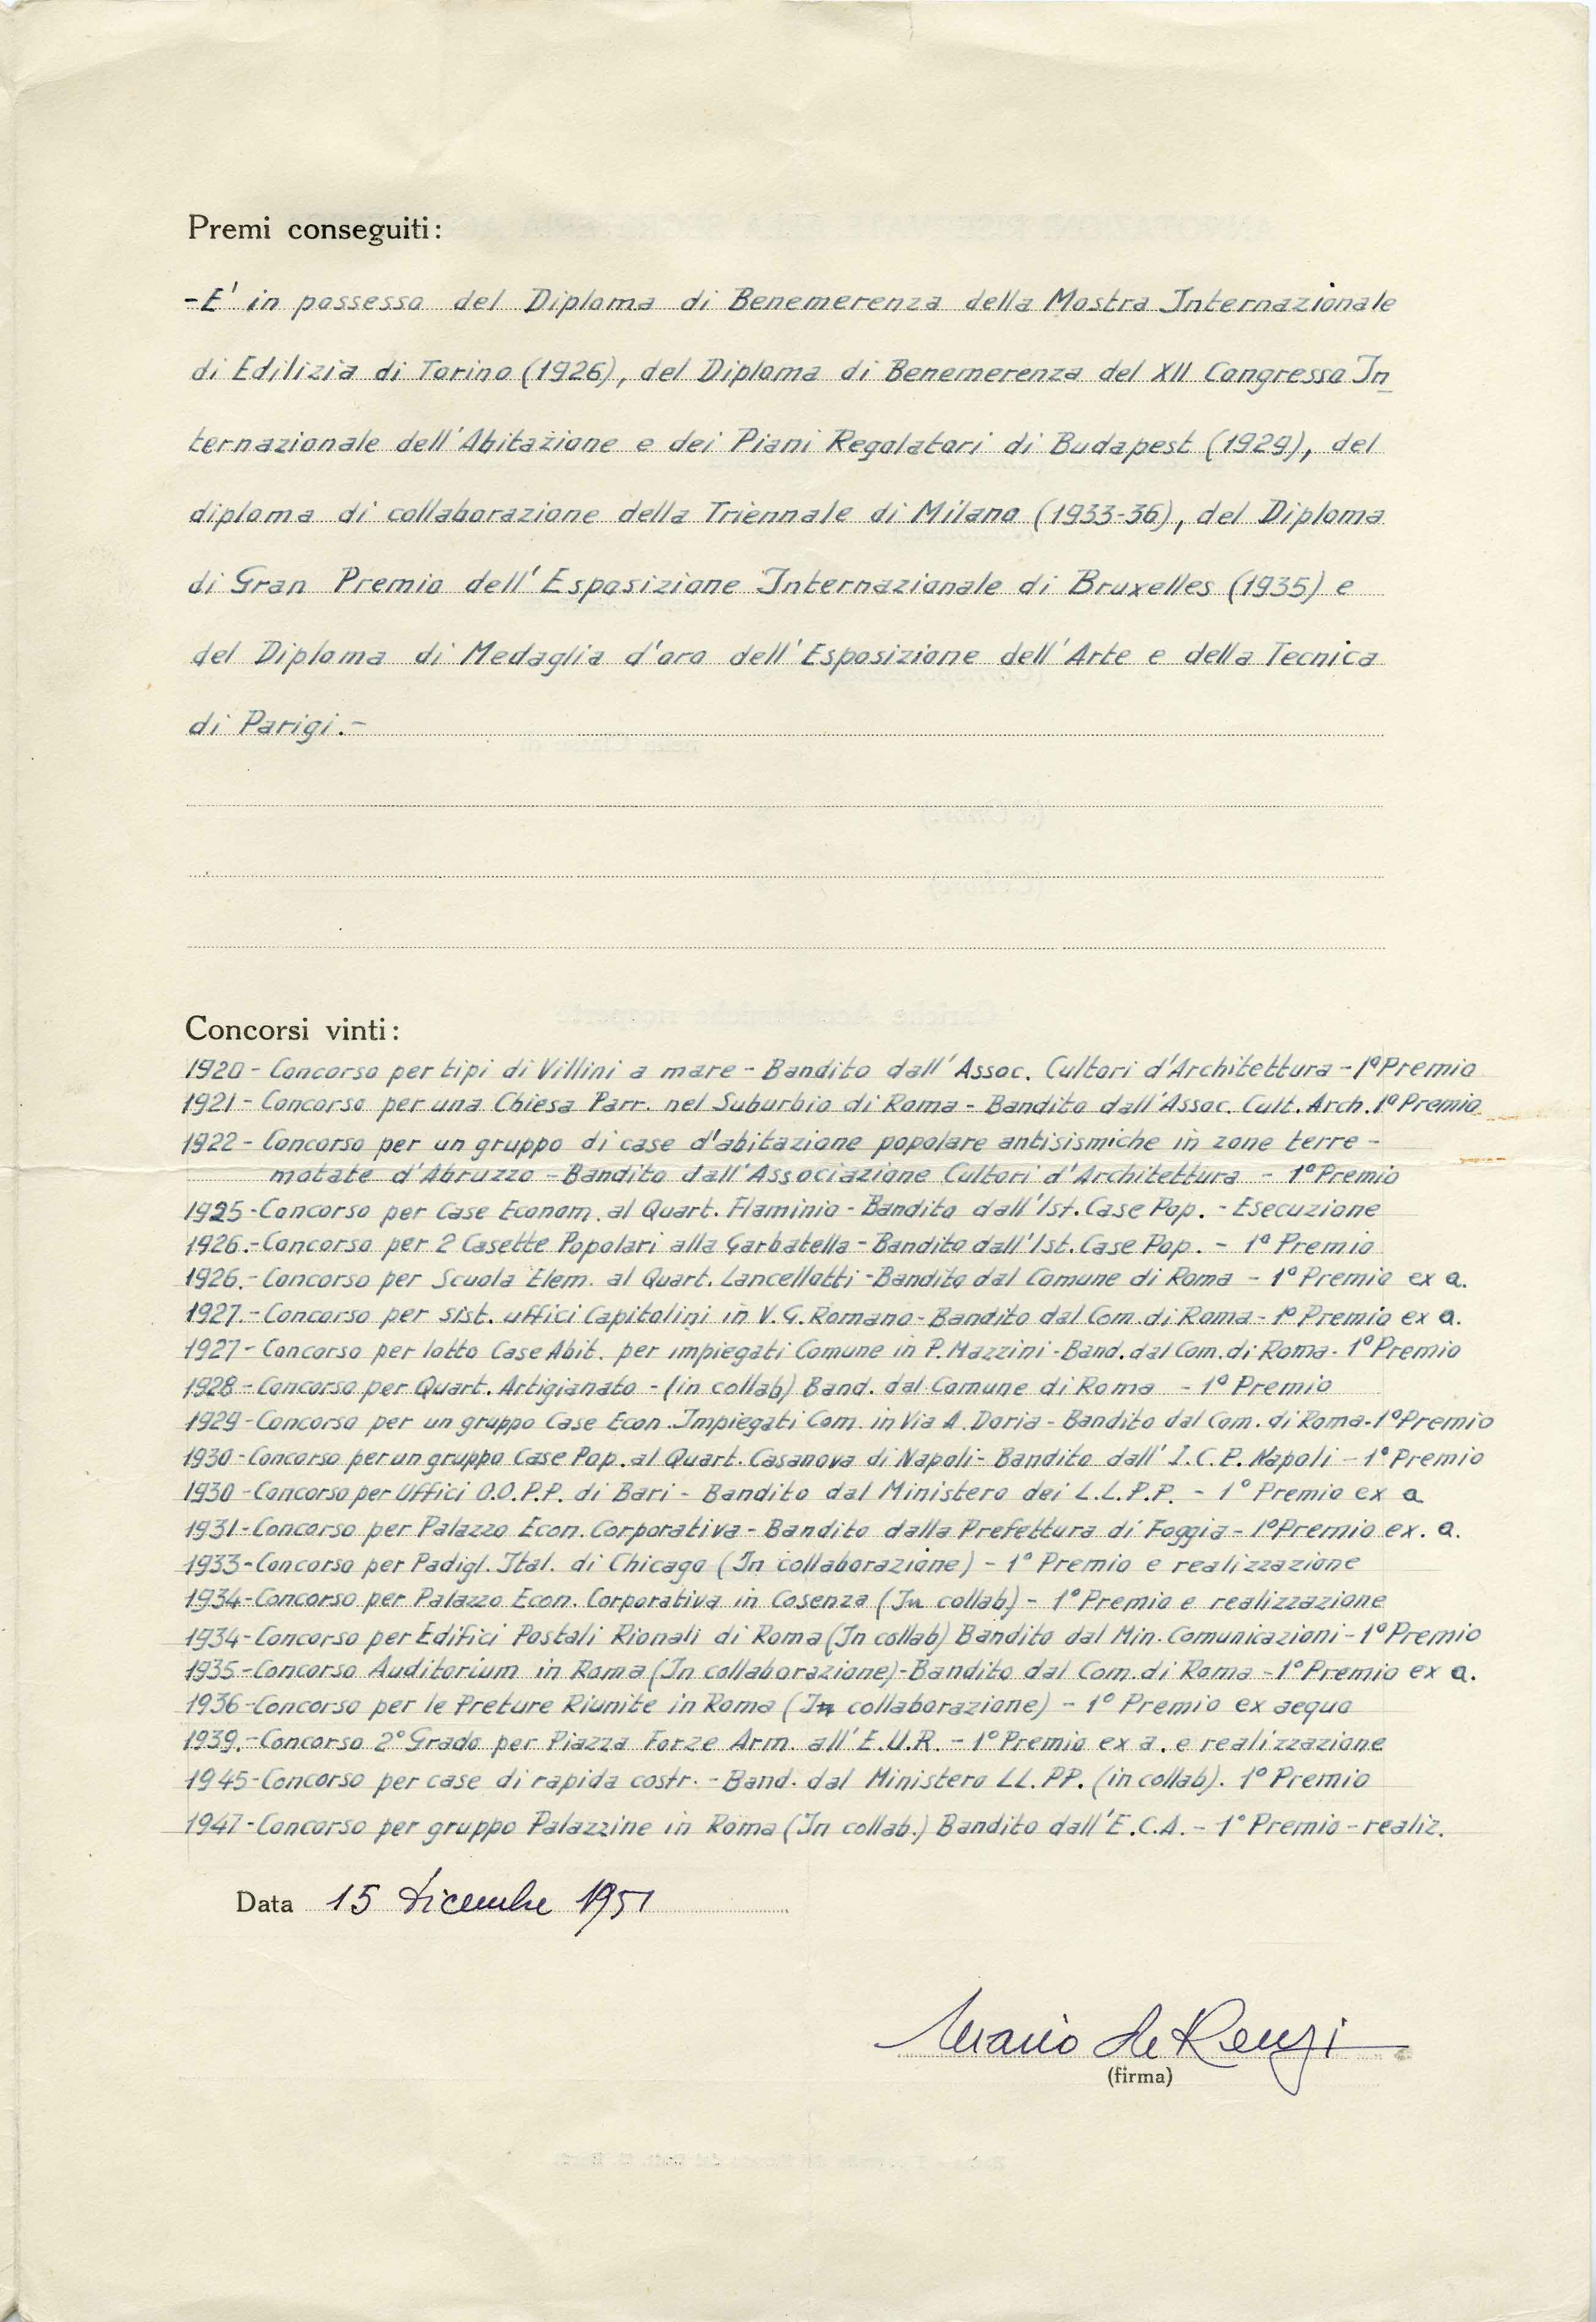 Premi conseguiti:
-E' in possesso del Diploma di Benemerenza della Mostra Internazionale
di Edilizia di Torino (1926), del Diploma di Benemerenza del XII Congresso In
ternazionale dell'Abitazione e dei Piani Regolatori di Budapest (1929), del
diploma di collaborazione della Triennale di Milano (1933-36), del Diploma
di Gran Premio dell'Esposizione Internazionale di Bruxelles (1935) e
del Diploma di Medaglia d'oro dell'Esposizione dell'Arte e della Tecnica
di Parigi.-
Concorsi vinti:
1920- Concorso per tipi di Villini a mare - Bandito dall'Assoc. Cultori d'Architettura - 1º Premio
1921- Concorso per una Chiesa Parr. nel Suburbio di Roma - Bandito dall'Assoc. Cult. Arch. 1º Premio
1922- Concorso per un gruppo di case d'abitazione popolare antisismiche in zone terre-
motate d'Abruzzo - Bandito dall'Associazione Cultori d'Architettura - 1º Premio
1925-Concorso per Case Econom. al Quart. Flaminio - Bandito dall'Ist. Case Pop. - Esecuzione
1926.-Concorso per 2 Casette Popolari alla Garbatella - Bandito dall'Ist. Case Pop. - 1º Premio
1926.- Concorso per Scuola Elem. al Quart. Lancellotti - Bandito dal Comune di Roma - 1º Premio ex a.
1927.- Concorso per sist. uffici Capitolini in V. G. Romano - Bandito dal Com. di Roma - 1º Premio ex a.
1927- Concorso per lotto Case Abit. per impiegati Comune in P. Mazzini - Band. dal Com. di Roma - 1º Premio
1928 - Concorso per Quart. Artigianato - (in collab) Band. dal Comune di Roma - 1º Premio
1929-Concorso per un gruppo Case Econ. Impiegati Com. in Via A. Doria - Bandito dal Com. di Roma - 1º Premio
1930-Concorso per un gruppo Case Pop. al Quart. Casanova di Napoli - Bandito dall' I.C.P. Napoli - 1º Premio
1930 - Concorso per Uffici O.O.P.P. di Bari - Bandito dal Ministero dei L.L.P.P. - 1º Premio ex a
1931-Concorso per Palazzo Econ. Corporativa - Bandito dalla Prefettura di Foggia - 1º Premio ex. a.
1933-Concorso per Padigl. Ital. di Chicago (In collaborazione) - 1º Premio e realizzazione
1934-Concorso per Palazzo Econ. Corporativa in Cosenza (In collab) - 1º Premio e realizzazione
1934-Concorso per Edifici Postali Rionali di Roma (In collab) Bandito dal Min. Comunicazioni - 1º Premio
1935-Concorso Auditorium in Roma (In collaborazione)-Bandito dal Com. di Roma - 1º Premio ex a.
1936-Concorso per le Preture Riunite in Roma (In collaborazione) - 1º Premio ex aequo
1939.-Concorso 2º Grado per Piazza Forze Arm. all'E.U.R. - 1º Premio ex a. e realizzazione
1945-Concorso per case di rapida costr. - Band. dal Ministero LL.PP. (in collab). 1º Premio
1947-Concorso per gruppo Palazzine in Roma (In collab.) Bandito dall'E.C.A. - 1º Premio - realiz.
Data 15 dicembre 1951
Mario de Renzi
(firma)